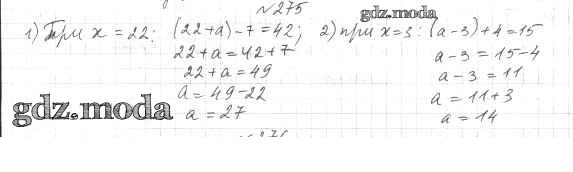 №275
gdz.moda
1) При x = 22; (22+a)-7=42;
22+a=42+7
22+a=49
a=49-22
a=27
2) при x=3: (a-3)+4=15
a-3=15-4
a-3=11
a=11+3
a=14
gdz.moda